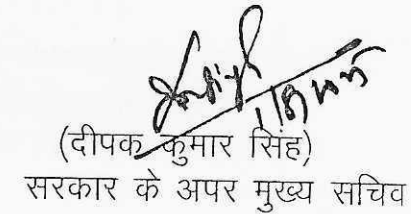 (दीपक कुमार सिंह)
सरकार के अपर मुख्य सचिव